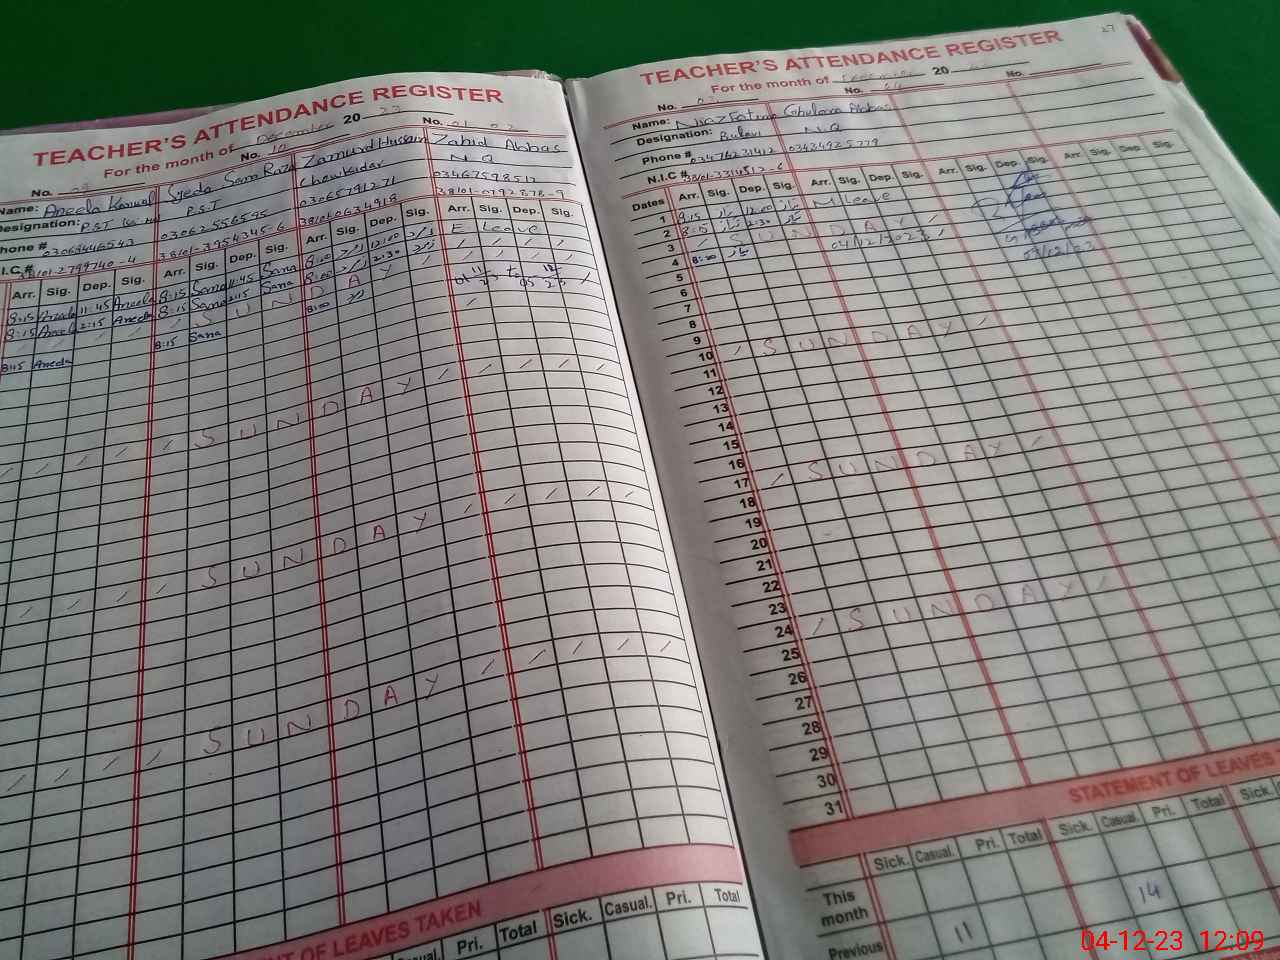 TEACHER'S ATTENDANCE REGISTER
For the month of December 20 23
No. No. 10 No. 01 02
Name: Aneela Kanwal Syeda Sana Raza Zamurd Hussain Zahid Abbas
Designation: PST P.S.T Chawkidar N Q
Phone # 03068446543 03062556595 03065791271 03467598512
N.I.C # 38101-2799740-4 38101-3954345-6 38101-0634918 38101-0792878-9
Arr. Sig. Dep. Sig. Arr. Sig. Dep. Sig. Arr. Sig. Dep. Sig. Arr. Sig. Dep. Sig.
8:15 Aneela 11:45 Aneela 8:15 Sana 11:45 Sana 8:00 12:00 E Leave
8:15 Aneela 2:15 Aneela 8:15 Sana 2:15 Sana 8:00 2:30
SUNDAY
8:15 Aneela 8:15 Sana 8:00
SUNDAY
SUNDAY
SUNDAY
OF LEAVES TAKEN
Casual. Pri. Total Sick. Casual. Pri. Total
27
TEACHER'S ATTENDANCE REGISTER
For the month of December 20
No. 03 No. 04 No.
Name: Niaz Fatima Ghulam Abbas
Designation: Bulavi N Q
Phone # 03476231412 03434925779
N.I.C # 38101-3314512-6
Dates Arr. Sig. Dep. Sig. Arr. Sig. Dep. Sig. Arr. Sig. Dep. Sig. Arr. Sig. Dep. Sig.
1 8:15 نیاز 12:00 نیاز M Leave
2 8:15 نیاز 2:30 نیاز
3 SUNDAY
4 8:00 نیاز 04/12/2023
04/12/23
5
6
7
8
9
10 SUNDAY
11
12
13
14
15
16
17 SUNDAY
18
19
20
21
22
23
24 SUNDAY
25
26
27
28
29
30
31
STATEMENT OF LEAVES
Sick. Casual. Pri. Total Sick. Casual. Pri. Total Sick.
This month 14
Previous 11
04-12-23 12:09